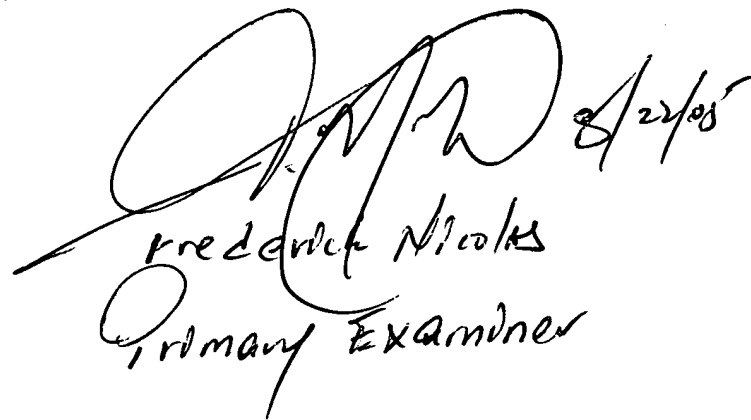 8/22/05
Frederick Nicolas
Primary Examiner